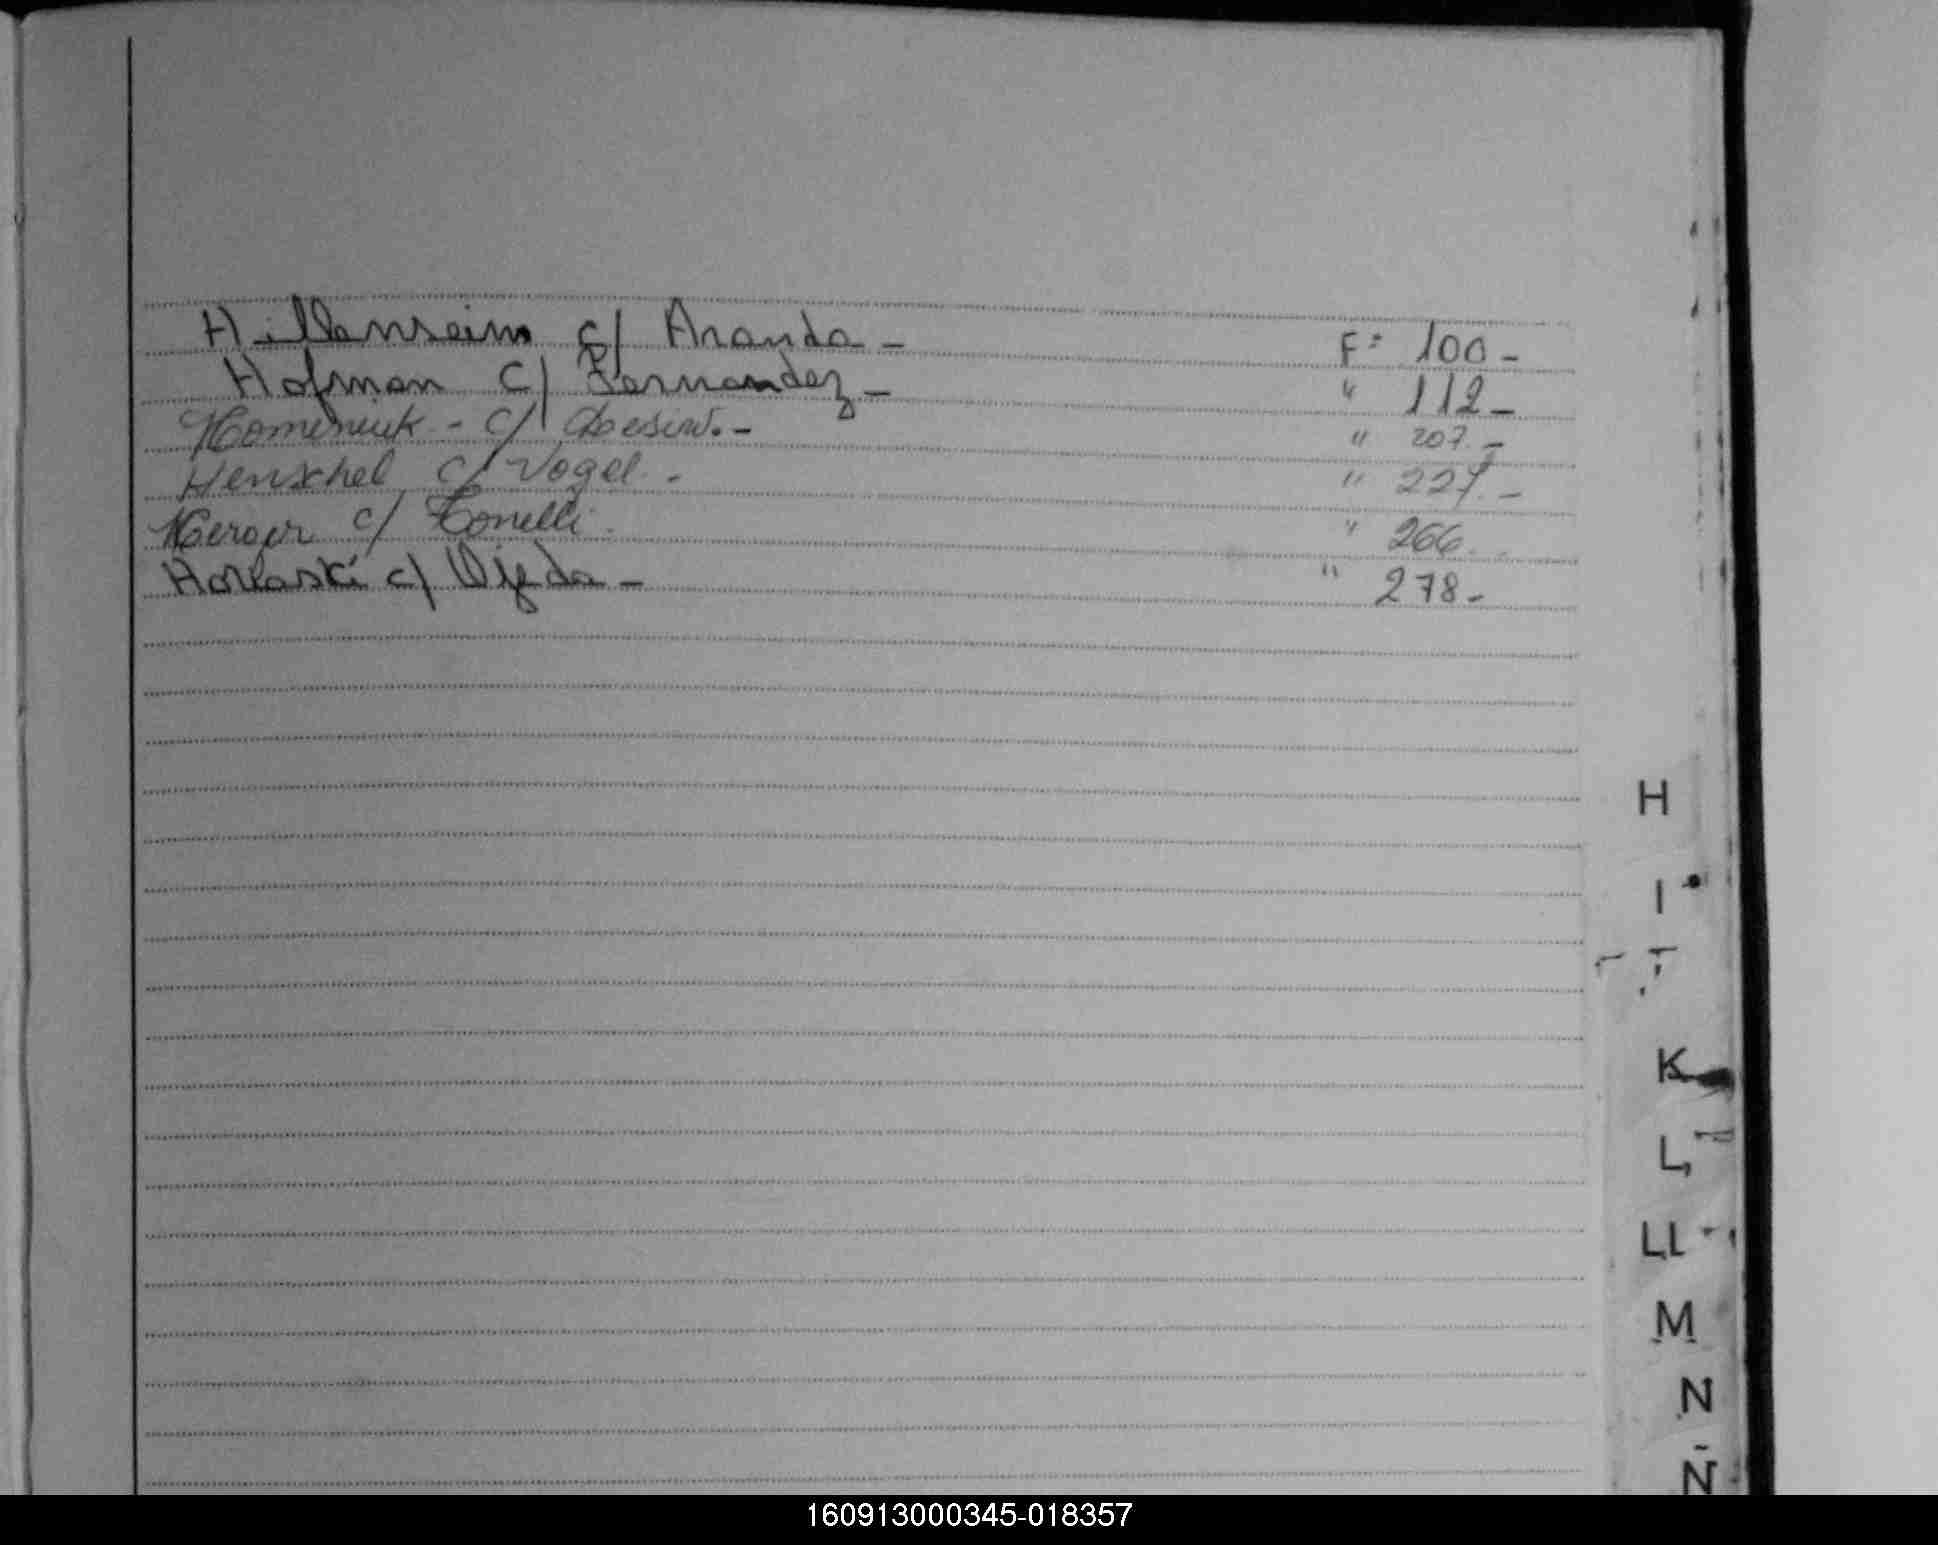 Hillenseim c/ Aranda - Fº 100 -
Hofman c/ Fernandez - " 112 -
Homeniuk - c/ - " 207. -
Henschel c/ Vogel. - " 227. -
c/ Tonelli. " 266.
c/ Ojeda - " 278 -
H
I
K
L
LL
M
N
Ñ
160913000345-018357